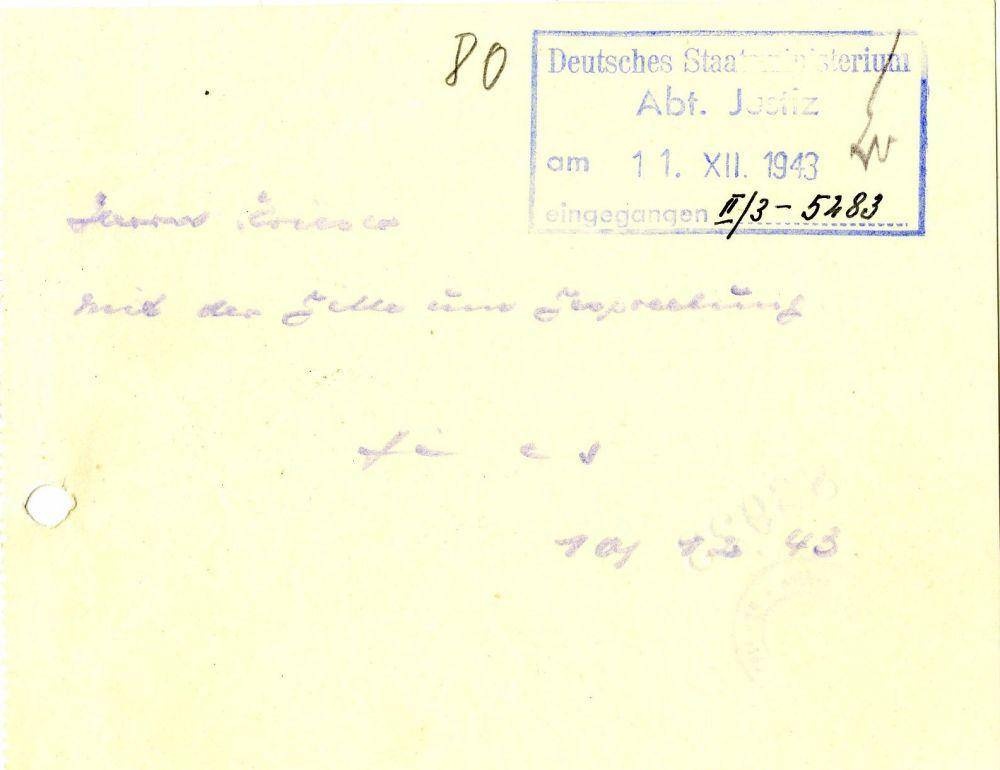 80
Deutsches Staatsministerium
Abt. Justiz
am 11. XII. 1943
eingegangen II/3-5283
Herrn
mit der Bitte um Besprechung
10/ 12 43